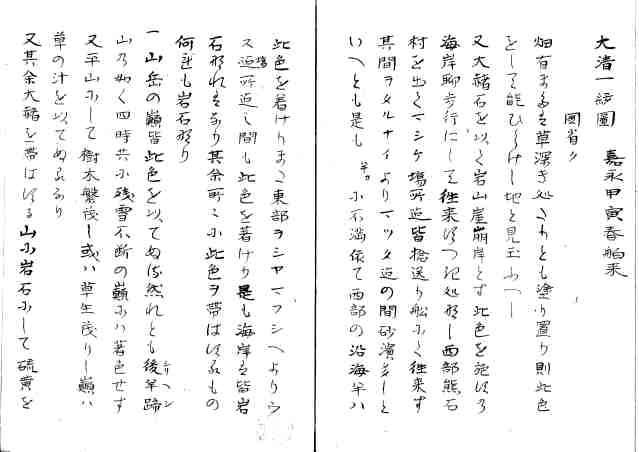 大清一統圖　嘉永甲寅春舶来
圖省ク
畑有まゝ又ハ草深き処こりとも塗り置り則此色
をして能ひらけし地と見玉ふへし
又大赭石を以て岩山崖崩岸とす此色を施すハ
海岸聊歩行にして往来すつれ処形し西部熊石
村を出てマシケ場所迄皆捻送り船ホて往来す
其間ヲタルナイよりマッタ迄の間砂濱多しと
いへとも是も　小石満依て西部の沿海半ハ
此色を着けりまた東部ヲシヤマンヘよりウ
ス場所迄之間も此色を著けり是も海岸ハ皆岩
石形れハなり其余所々ホ此色ヲ帯はするもの
何れも岩石形り
一山岳の巓皆此色を以てぬる然れとも後羊蹄
山乃如く四時共ホ残雪不断の巓ホハ著色せす
又平山ホして樹木繁茂し或ハ草生茂りし巓ハ
草の汁を以てぬるなり
又其余大赭を帯はする山ホ岩石ホして硫黄を